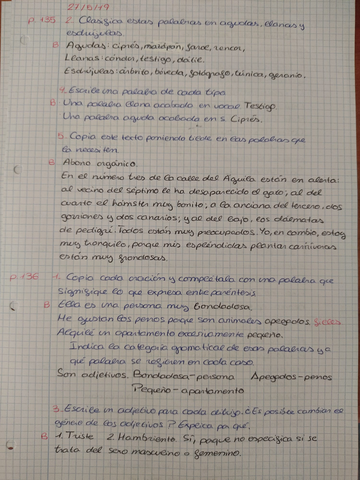 27/5/19
p.135 2. Clasifica estas palabras en agudas, llanas y
esdrújulas.
B Agudas: ciprés, mazapán, farol, rencor,
Llanas: cóndor, testigo, dátil.
Esdrújulas: árbitro, bóveda, fotógrafo, túnica, geranio.
4. Escribe una palabra de cada tipo
B Una palabra llana acabada en vocal: Testigo.
Una palabra aguda acabada en s: Ciprés.
5. Copia este texto poniendo tilde en las palabras que
la necesiten.
B Abono orgánico.
En el número tres de la calle del Aguila están en alerta:
al vecino del séptimo le ha desaparecido el gato, al del
cuarto el hámster muy bonito, a la anciana del tercero, dos
gorriones y dos canarios; y al del bajo, los dálmatas
de pedigrí. Todos están muy preocupados. Yo, en cambio, estoy
muy tranquilo, porque mis espléndidas plantas carnívoras
están muy frondosas.
p.136 1. Copia cada oración y complétala con una palabra que
signifique lo que expresa entre paréntesis.
B Ella es una persona muy bondadosa.
Me gustan los perros porque son animales apegados fieles
Alquilé un apartamento excesivamente pequeño.
Indica la categoría gramatical de esas palabras y a
qué palabra se refieren en cada caso.
Son adjetivos. Bondadosa-persona Apegados-perros
Pequeño-apartamento
3. Escribe un adjetivo para cada dibujo. ¿Es posible cambiar el
género de los adjetivos? Explica por qué.
B 1. Triste 2. Hambriento Sí, porque no especifica si se
trata del sexo masculino o femenino.